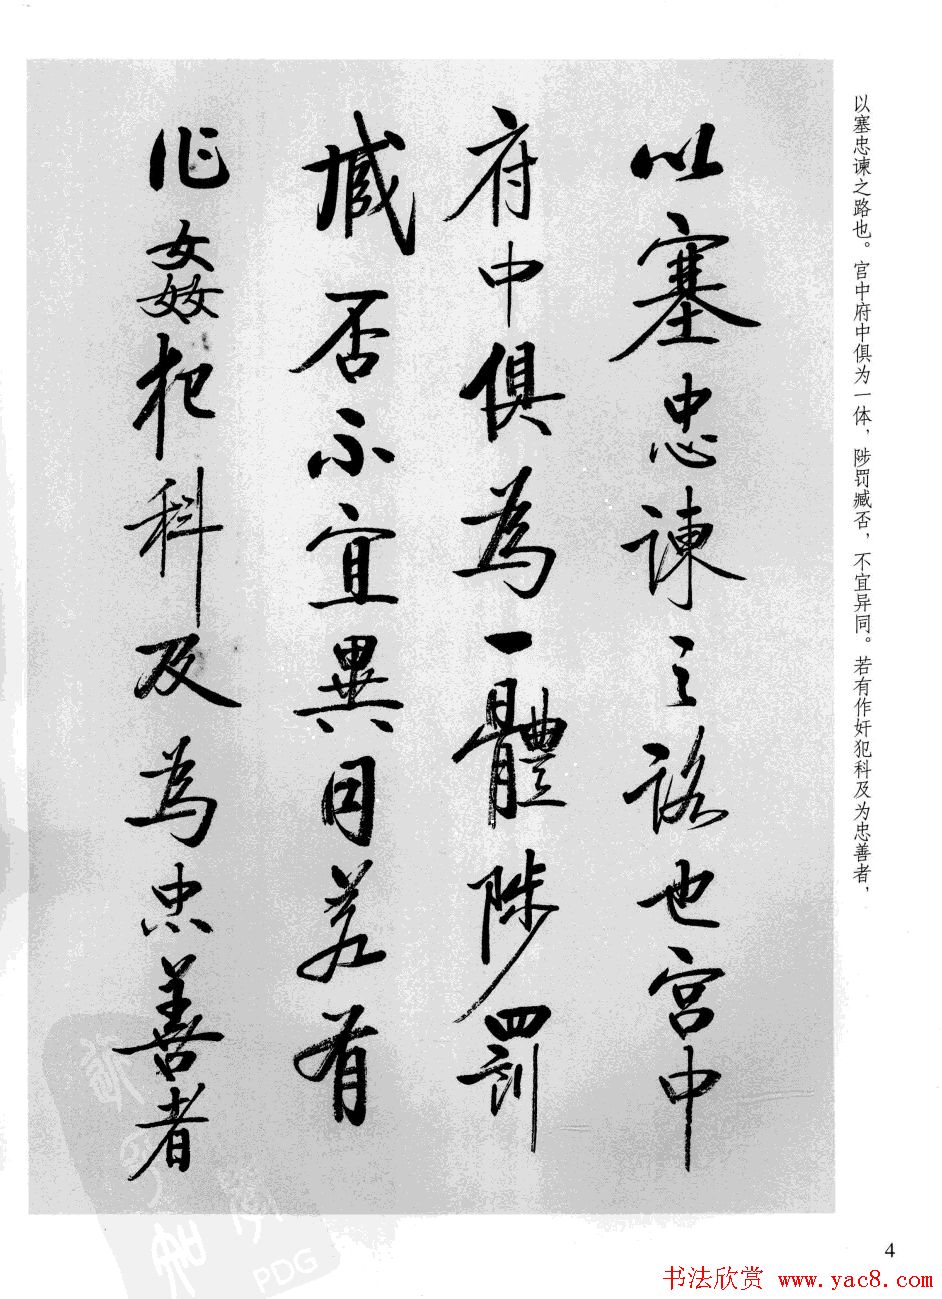 以塞忠諫之路也宮中
府中俱為一體陟罰
臧否不宜異同若有
作姦犯科及為忠善者
以塞忠谏之路也。宫中府中俱为一体，陟罚臧否，不宜异同。若有作奸犯科及为忠善者，
4
书法欣赏 www.yac8.com
PDG